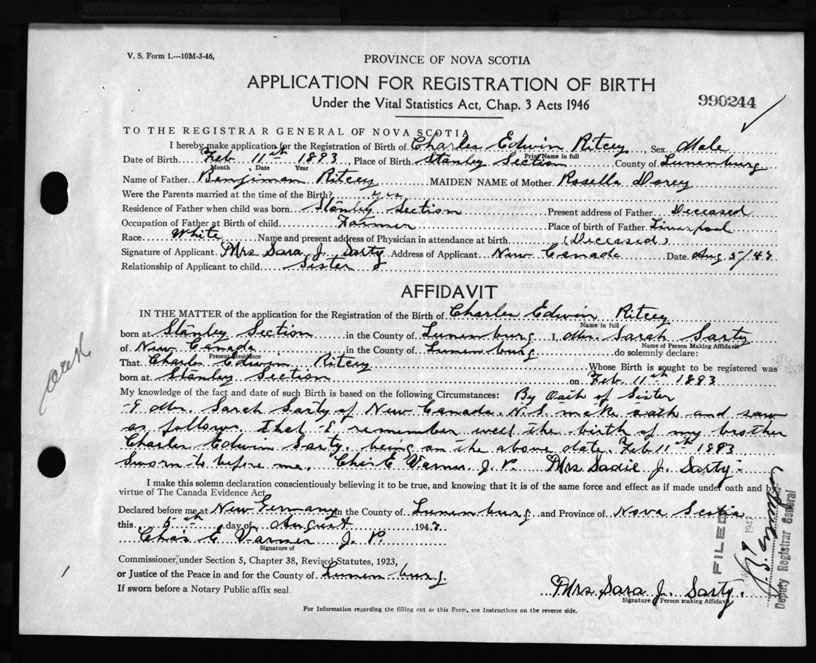 V. S. Form 1.—10M-3-46,
PROVINCE OF NOVA SCOTIA
APPLICATION FOR REGISTRATION OF BIRTH
Under the Vital Statistics Act, Chap. 3 Acts 1946
990244
TO THE REGISTRAR GENERAL OF NOVA SCOTIA
I hereby make application for the Registration of Birth of Charles Edwin Ritcey, Sex Male
Print Name in full
Date of Birth Feb 11th 1893, Place of Birth Stanley Section County of Lunenburg
Month Date Year
Name of Father Benjiman Ritcey MAIDEN NAME of Mother Rosella Dorey
Were the Parents married at the time of the Birth? yes
Residence of Father when child was born Stanley Section Present address of Father Deceased
Occupation of Father at Birth of child Farmer Place of birth of Father Liverpool
Race White Name and present address of Physician in attendance at birth (Deceased)
Signature of Applicant Mrs Sara J. Sarty Address of Applicant New Canada Date Aug 5/47
Relationship of Applicant to child Sister
AFFIDAVIT
IN THE MATTER of the application for the Registration of the Birth of Charles Edwin Ritcey
Name in full
born at Stanley Section in the County of Lunenburg I, Mrs Sarah Sarty
Name of Person Making Affidavit
of New Canada, in the County of Lunenburg do solemnly declare:
Present Residence
That Charles Edwin Ritcey Whose Birth is sought to be registered was
born at Stanley Section on Feb 11th 1893
My knowledge of the fact and date of such Birth is based on the following Circumstances: By Oath of Sister
I Mrs. Sarah Sarty of New Canada. N.S. make oath and say
as follows, that I remember well the birth of my brother
Charles Edwin Sarty, being on the above date, Feb 11th 1893
Sworn to before me, Chas E Varner J. P. Mrs Sadie J. Sarty
I make this solemn declaration conscientiously believing it to be true, and knowing that it is of the same force and effect as if made under oath and by
virtue of The Canada Evidence Act.
Declared before me at New Germany in the County of Lunenburg and Province of Nova Scotia
this 5th day of August 1947
Chas E Varner J. P.
Signature of
Commissioner under Section 5, Chapter 38, Revised Statutes, 1923,
or Justice of the Peace in and for the County of Lunenburg.
If sworn before a Notary Public affix seal.
Mrs Sara J. Sarty
Signature of Person making Affidavit
For Information regarding the filling out of this Form, see Instructions on the reverse side.
FILED
1947
Deputy Registrar General